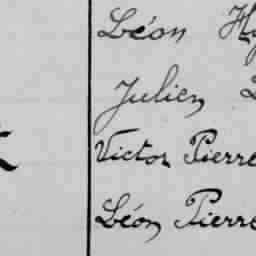 Léon
Julien
Victor Pierre
Léon Pierre